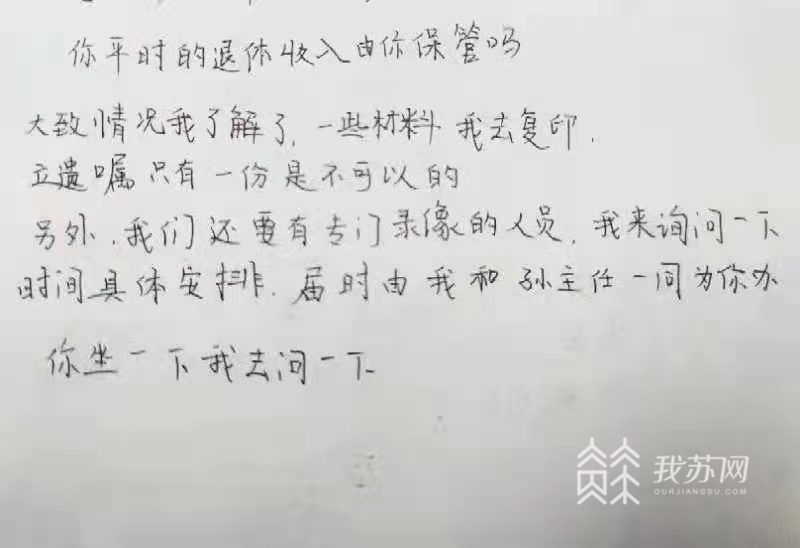 你平时的退休收入由你保管吗
大致情况我了解了,一些材料我去复印.
立遗嘱只有一份是不可以的
另外,我们还要有专门录像的人员,我来询问一下
时间具体安排.届时由我和孙主任一同为你办
你坐一下我去问一下
我苏网
OURJIANGSU.COM